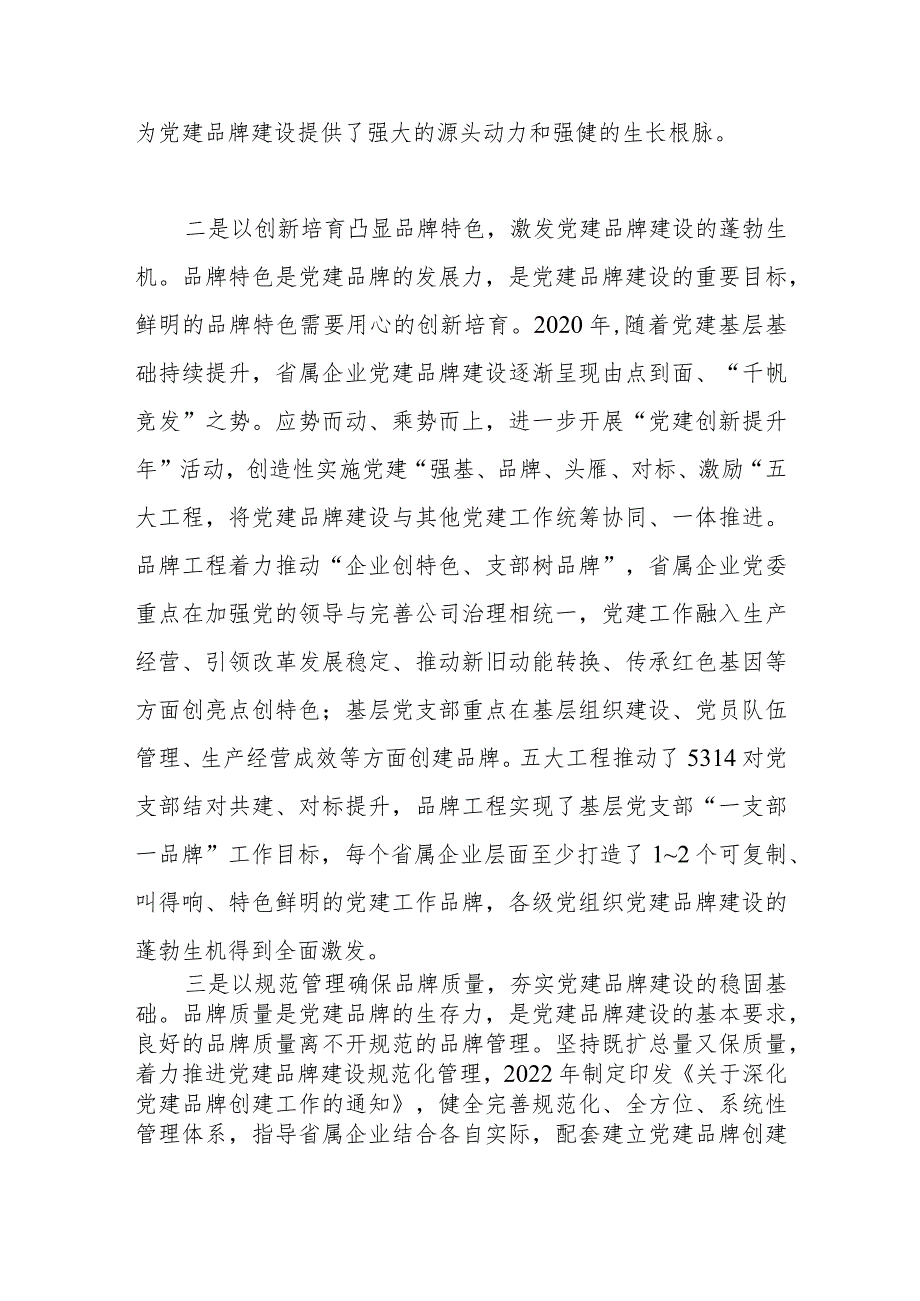 为党建品牌建设提供了强大的源头动力和强健的生长根脉。
二是以创新培育凸显品牌特色，激发党建品牌建设的蓬勃生
机。品牌特色是党建品牌的发展力，是党建品牌建设的重要目标，
鲜明的品牌特色需要用心的创新培育。2020 年,随着党建基层基
础持续提升，省属企业党建品牌建设逐渐呈现由点到面、“千帆
竞发”之势。应势而动、乘势而上，进一步开展“党建创新提升
年”活动，创造性实施党建“强基、品牌、头雁、对标、激励“五
大工程，将党建品牌建设与其他党建工作统筹协同、一体推进。
品牌工程着力推动“企业创特色、支部树品牌”，省属企业党委
重点在加强党的领导与完善公司治理相统一，党建工作融入生产
经营、引领改革发展稳定、推动新旧动能转换、传承红色基因等
方面创亮点创特色；基层党支部重点在基层组织建设、党员队伍
管理、生产经营成效等方面创建品牌。五大工程推动了 5314 对党
支部结对共建、对标提升，品牌工程实现了基层党支部“一支部
一品牌”工作目标，每个省属企业层面至少打造了 1~2 个可复制、
叫得响、特色鲜明的党建工作品牌，各级党组织党建品牌建设的
蓬勃生机得到全面激发。
三是以规范管理确保品牌质量，夯实党建品牌建设的稳固基
础。品牌质量是党建品牌的生存力，是党建品牌建设的基本要求，
良好的品牌质量离不开规范的品牌管理。坚持既扩总量又保质量，
着力推进党建品牌建设规范化管理，2022 年制定印发《关于深化
党建品牌创建工作的通知》，健全完善规范化、全方位、系统性
管理体系，指导省属企业结合各自实际，配套建立党建品牌创建